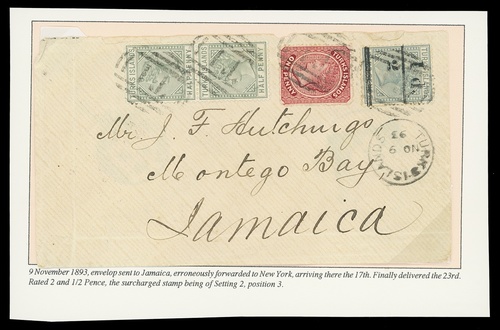 TURKS ISLANDS
HALF PENNY
TURKS ISLANDS
HALF PENNY
TURKS ISLANDS
ONE PENNY
Mr. J. F. Hutchings
Montego Bay
Jamaica
TURKS ISLANDS
NO 9
93
9 November 1893, envelop sent to Jamaica, erroneously forwarded to New York, arriving there the 17th. Finally delivered the 23rd.
Rated 2 and 1/2 Pence, the surcharged stamp being of Setting 2, position 3.